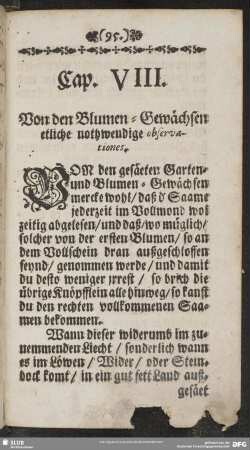 (95.)
Cap. VIII.
Von den Blumen-Gewächsen
etliche nothwendige observa-
tiones.
VON den gesäeten Garten-
und Blumen-Gewächsen
mercke wohl/ daß d' Saame
jederzeit im Vollmond wol
zeitig abgelesen/ und daß/ wo müglich/
solcher von der ersten Blumen/ so an
dem Vollschein dran außgeschlossen
seynd/ genommen werde/ und damit
du desto weniger irrest/ so brich die
übrige Knöpfflein alle hinweg/ so kanst
du den rechten vollkommenen Saa-
men bekommen.
Wann dieser widerumb im zu-
nemmenden Liecht/ sonderlich wann
es im Löwen/ Wider/ oder Stein-
bock komt/ in ein gut fett Land auß-
gesäet
SLUB
DFG